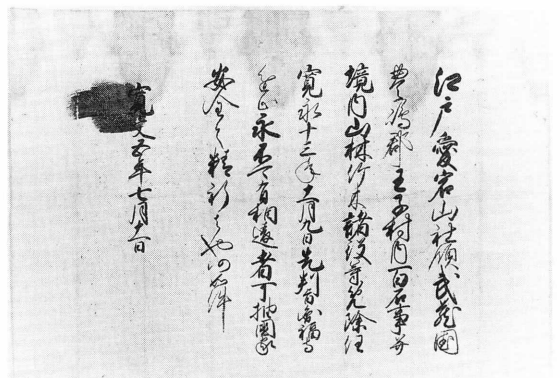 江戸愛宕山社領、武蔵国
豊嶋郡王子村内百石事并
境内山林竹木諸役等免除任
寛永十三年十一月九日先判之旨
永不可有相違者可抽国家
安全之精祈之状如件
寛文五年七月十一日